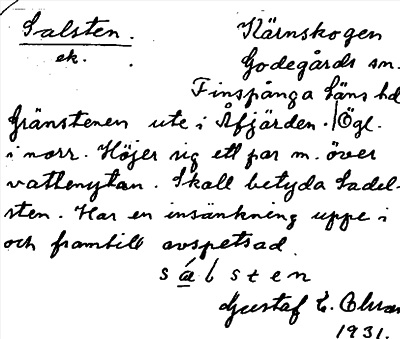 Salsten. Kärnskogen
ek. Godegårds sn.
Finspånga läns hd
Gränstenen ute i Åfjärden. Ögl.
i norr. Höjer sig ett par m. över
vattenytan. Skall betyda Sadel-
sten. Har en insänkning uppe i
och framtill avspetsad.
sa̲lsten
Gustaf E.
1931.